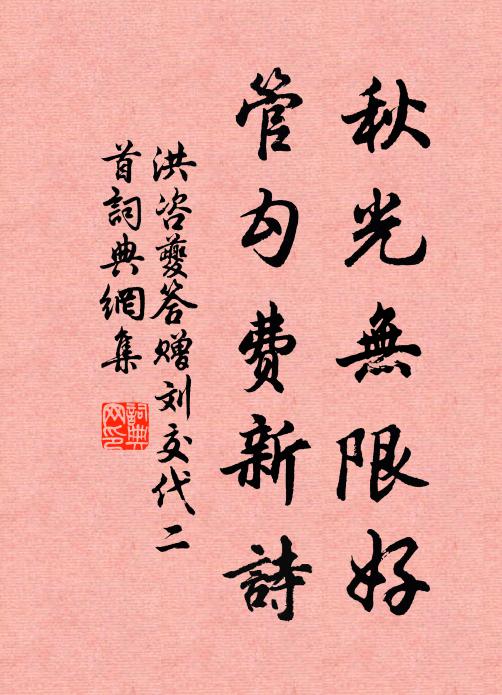 秋光無限好
管勾費新詩
洪咨夔答贈刘交代二
首詞典網集
詞典
网印